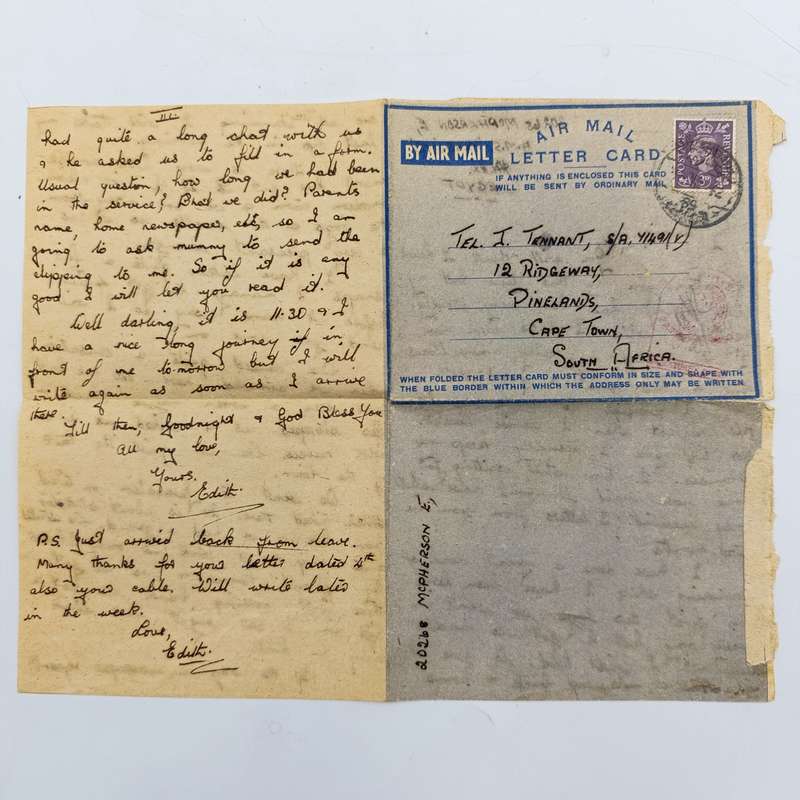 III
had quite a long chat with us
& he asked us to fill in a form.
Usual question, how long we had been
in the service? What we did? Parents
name, home newspaper, etc, so I am
going to ask mummy to send the
clipping to me. So if it is any
good I will let you read it.
Well darling, it is 11.30 & I
have a nice long journey if in
front of me to-morrow but I will
write again as soon as I arrive
there.
Till then, Goodnight & God Bless You
All my love,
Yours.
Edith.
P.S. Just arrived back from leave.
Many thanks for your letter dated 4th
also your cable. Will write later
in the week.
Love,
Edith.
BY AIR MAIL
AIR MAIL
LETTER CARD
IF ANYTHING IS ENCLOSED THIS CARD
WILL BE SENT BY ORDINARY MAIL
POSTAGE REVENUE
3D
TEL. I. TENNANT, S/A. 4149/(V)
12 RIDGEWAY,
PINELANDS,
CAPE TOWN,
SOUTH AFRICA.
WHEN FOLDED THE LETTER CARD MUST CONFORM IN SIZE AND SHAPE WITH
THE BLUE BORDER WITHIN WHICH THE ADDRESS ONLY MAY BE WRITTEN
20268 MCPHERSON E,